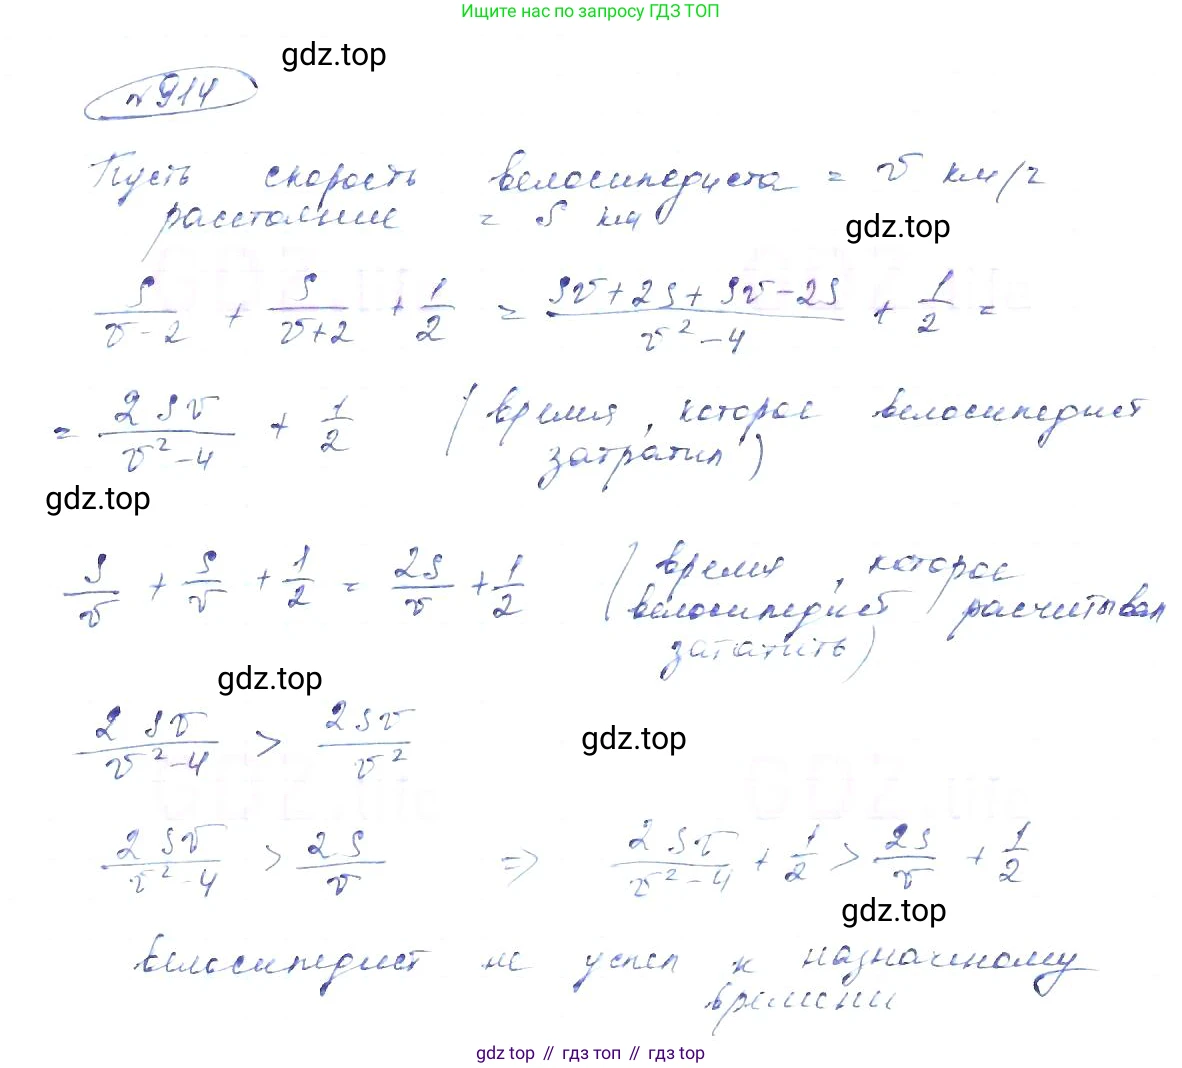 Ищите нас по запросу ГДЗ ТОП
gdz.top
№914
Пусть скорость велосипедиста = v км/ч
расстояние = S км
gdz.top
S/(v-2) + S/(v+2) + 1/2 = (Sv+2S+Sv-2S)/(v²-4) + 1/2 =
= 2Sv/(v²-4) + 1/2 (время, которое велосипедист
затратил)
gdz.top
S/v + S/v + 1/2 = 2S/v + 1/2 (время, которое
велосипедист расчитывал
зататить)
gdz.top
2Sv/(v²-4) > 2Sv/v²
gdz.top
2Sv/(v²-4) > 2S/v => 2Sv/(v²-4) + 1/2 > 2S/v + 1/2
gdz.top
велосипедист не успел к назначеному
времени
gdz top // гдз топ // gdz top